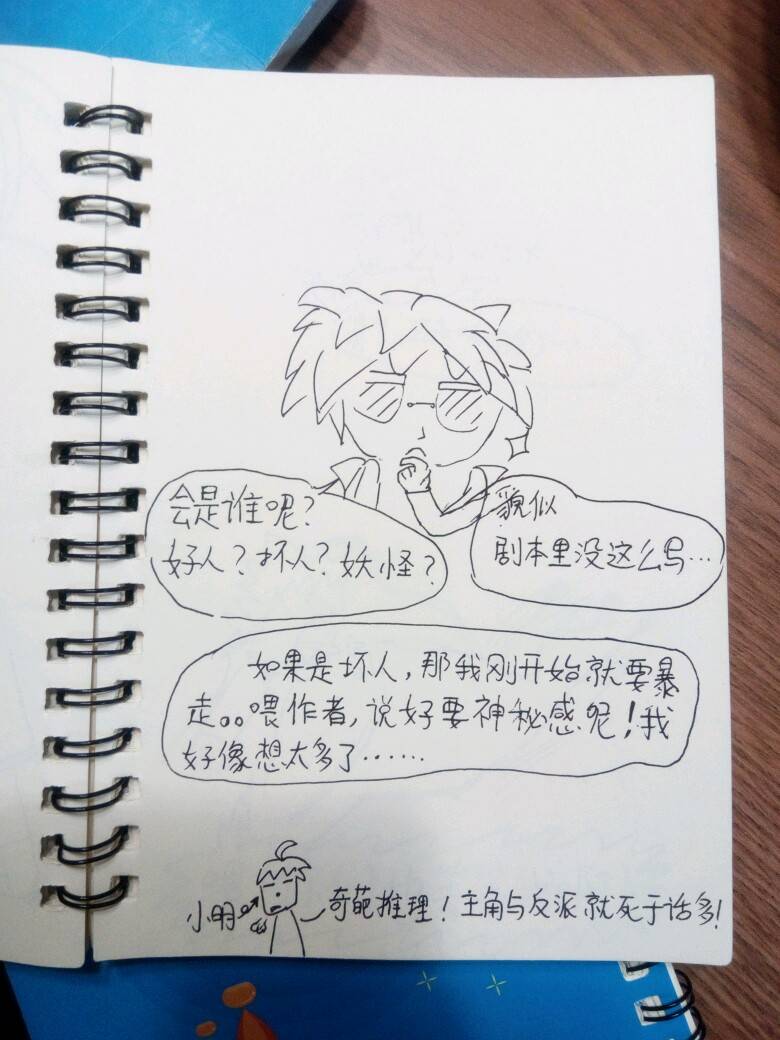 会是谁呢？
好人？坏人？妖怪？
貌似
剧本里没这么写…
如果是坏人，那我刚开始就要暴
走。。喂作者，说好要神秘感呢！我
好像想太多了……
小明
奇葩推理！主角与反派就死于话多！